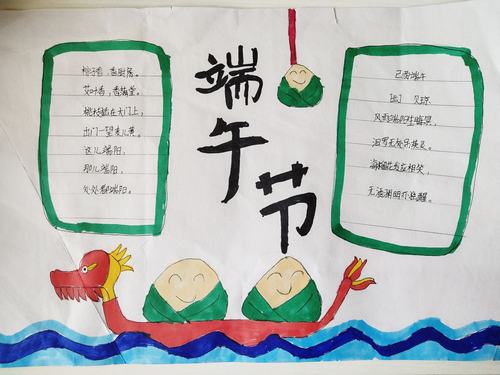 粽子香,香厨房。
艾叶香,香满堂。
桃枝插在大门上,
出门一望麦儿黄。
这儿端阳,
那儿端阳,
处处都端阳。
端午节
己酉端午
[元] 贝琼
风雨端阳生晦冥,
汨罗无处吊英灵。
海榴花发应相笑,
无酒渊明亦独醒。